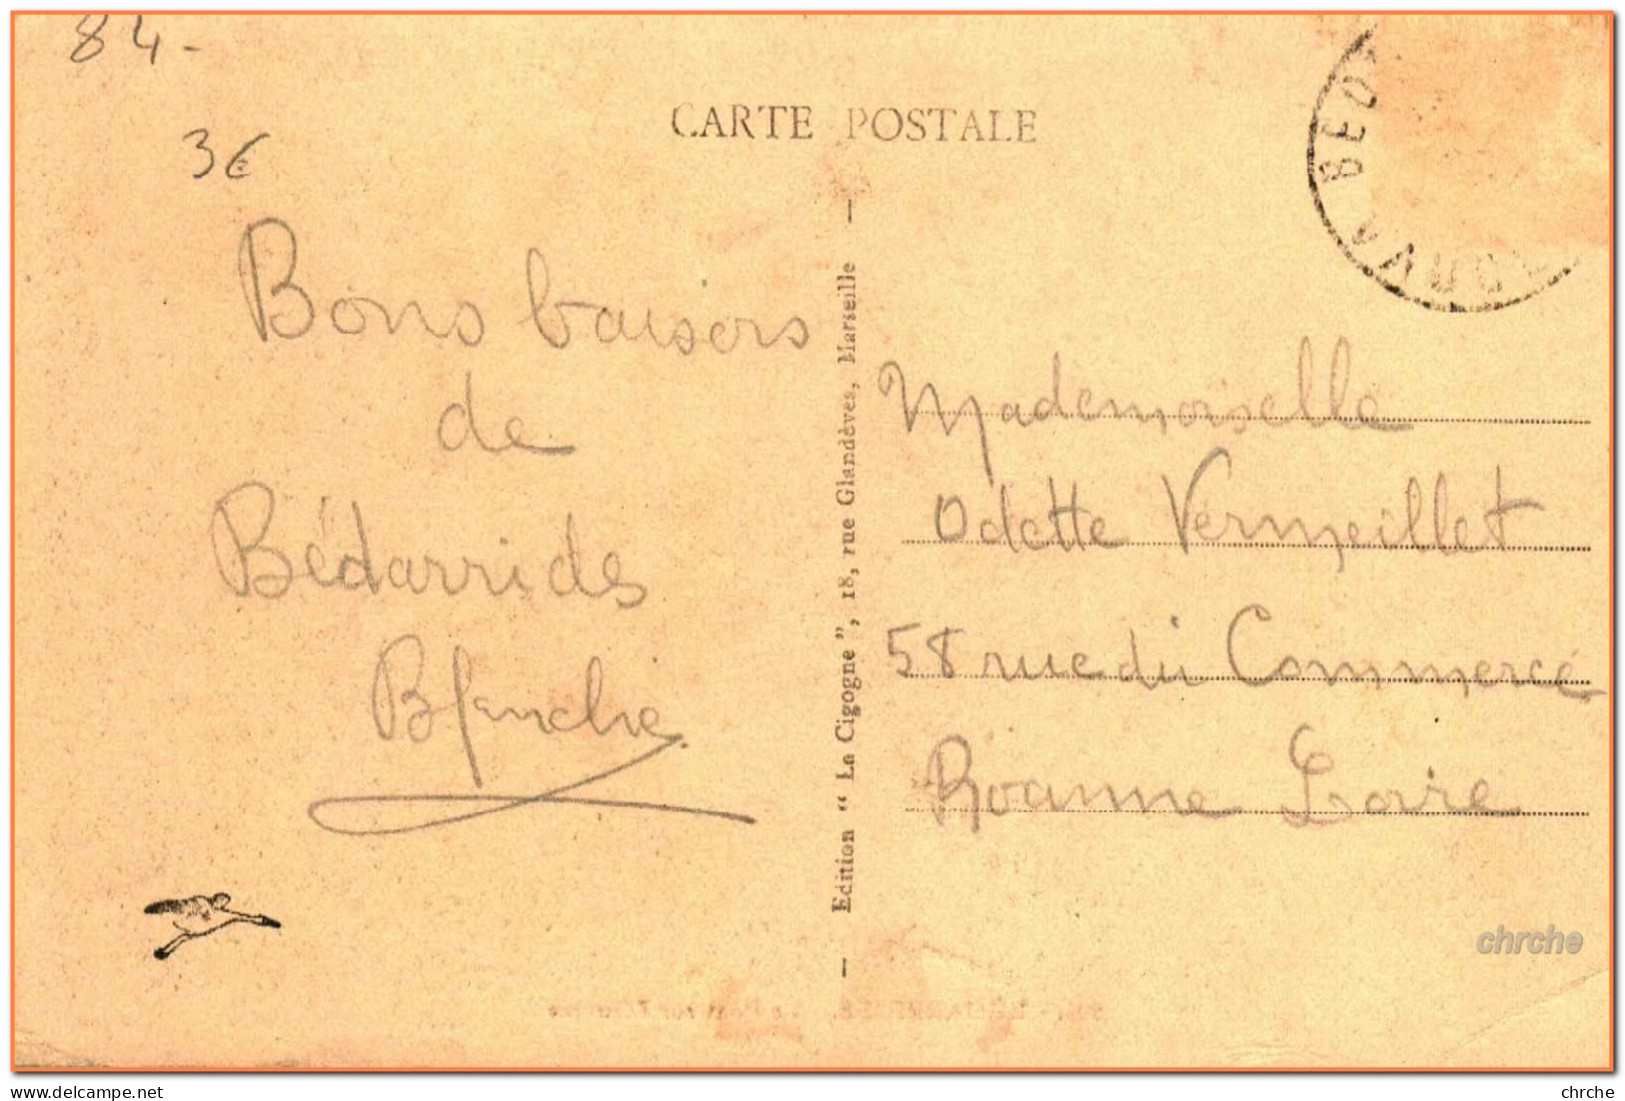 84-
3€
CARTE POSTALE
Bons baisers
de
Bédarrides
Blanche
Edition “ La Cigogne ”, 18, rue Glandèves, Marseille
Mademoiselle
Odette Vermeillet
58 rue du Commerce
Roanne Loire
chrche
delcampe.net
chrche